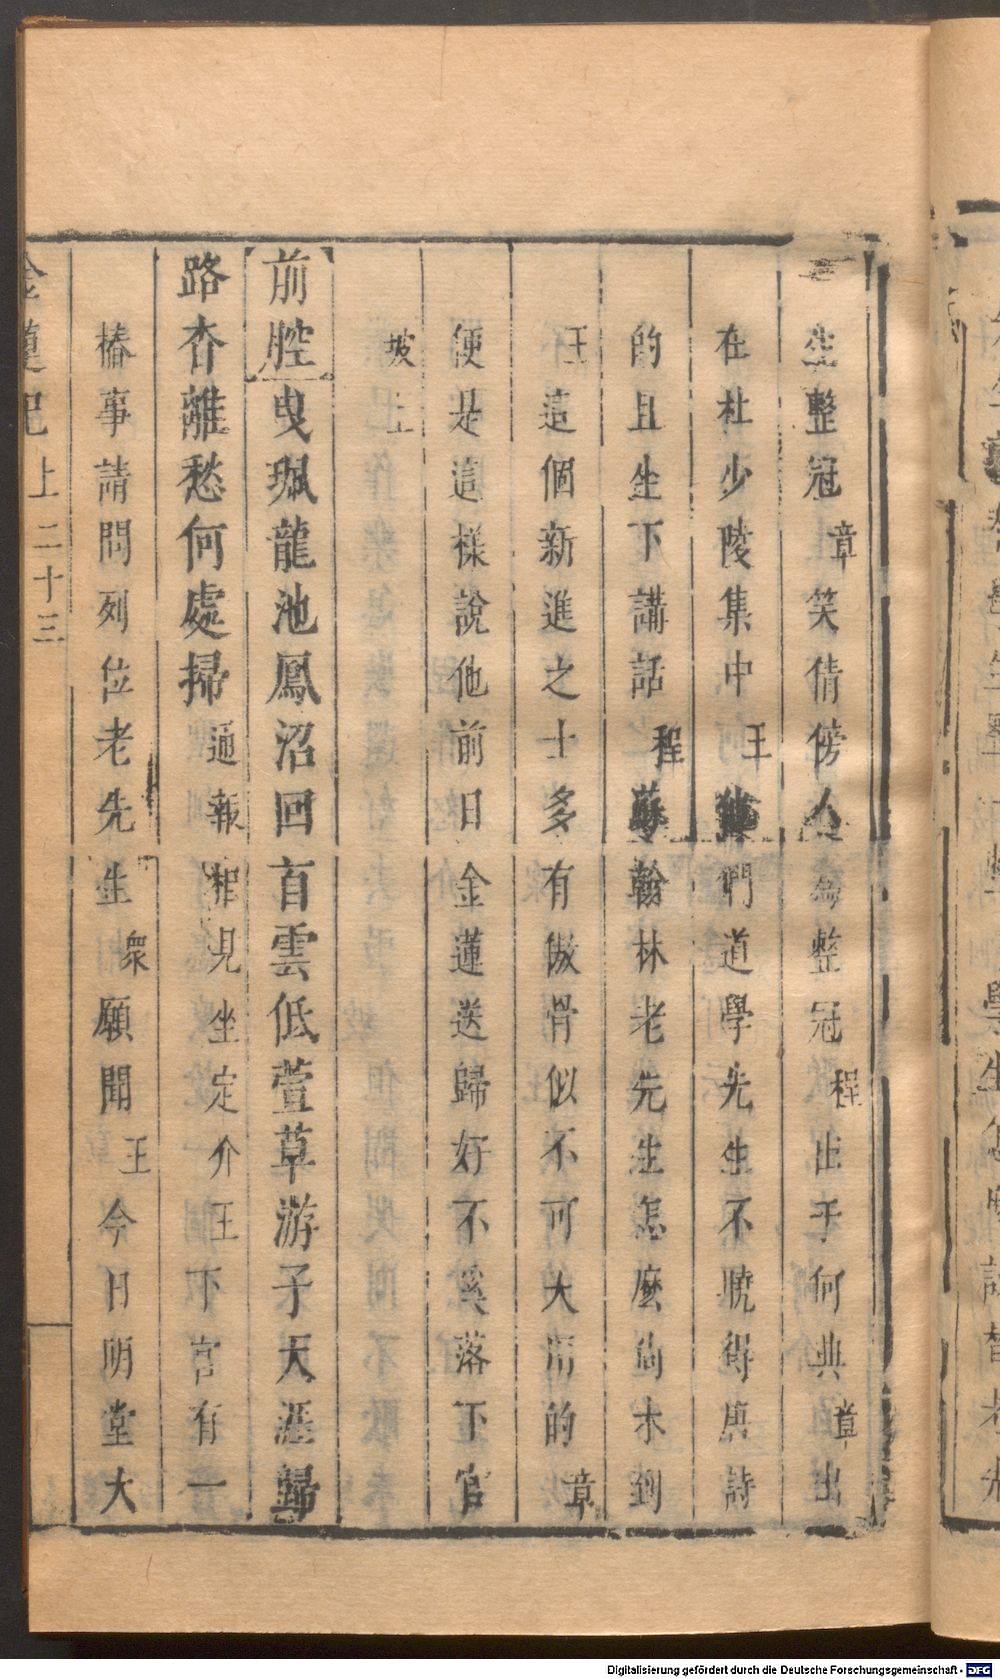 生整冠章笑倩傍人為整冠程出于何典章出
在杜少陵集中王他們道學先生不曉得唐詩
的且坐下講話程蘇翰林老先生怎麼尚未到
王這個新進之士多有傲骨似不可大用的章
便是這樣說他前日金蓮送歸好不奚落下官
坡上
前腔曳珮龍池鳳沼回首雲低萱草游子天涯歸
路杳離愁何處掃通報相見坐定介王下官有一
樁事請問列位老先生衆願聞王今日明堂大
金蓮記上二十三
Digitalisierung gefördert durch die Deutsche Forschungsgemeinschaft - DFG